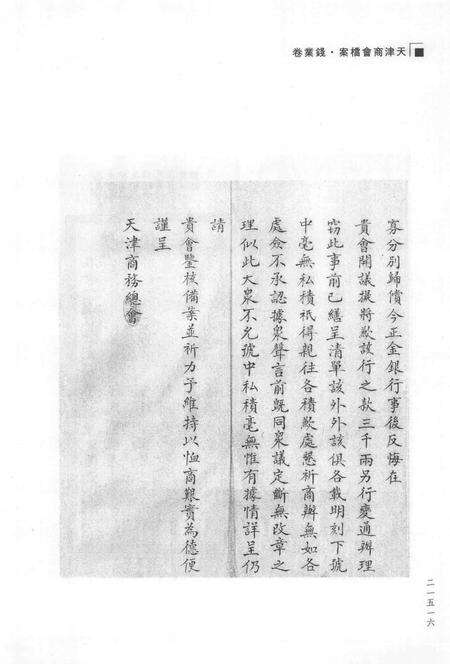 天津商會檔案·錢業卷
寡分別歸償今正金銀行事後反悔在
貴會開議擬將欵該行之款三千兩另行變通辦理
竊此事前已繕呈清單該外外該俱各載明刻下號
中毫無私積祇得親往各積欵處懇祈商辦無如各
處僉不承認據衆聲言前既同衆議定斷無改章之
理似此大衆不允號中私積毫無惟有據情詳呈仍
請
貴會鑒核備案並祈力予維持以恤商艱實為德便
謹呈
天津商務總會
二一五一六